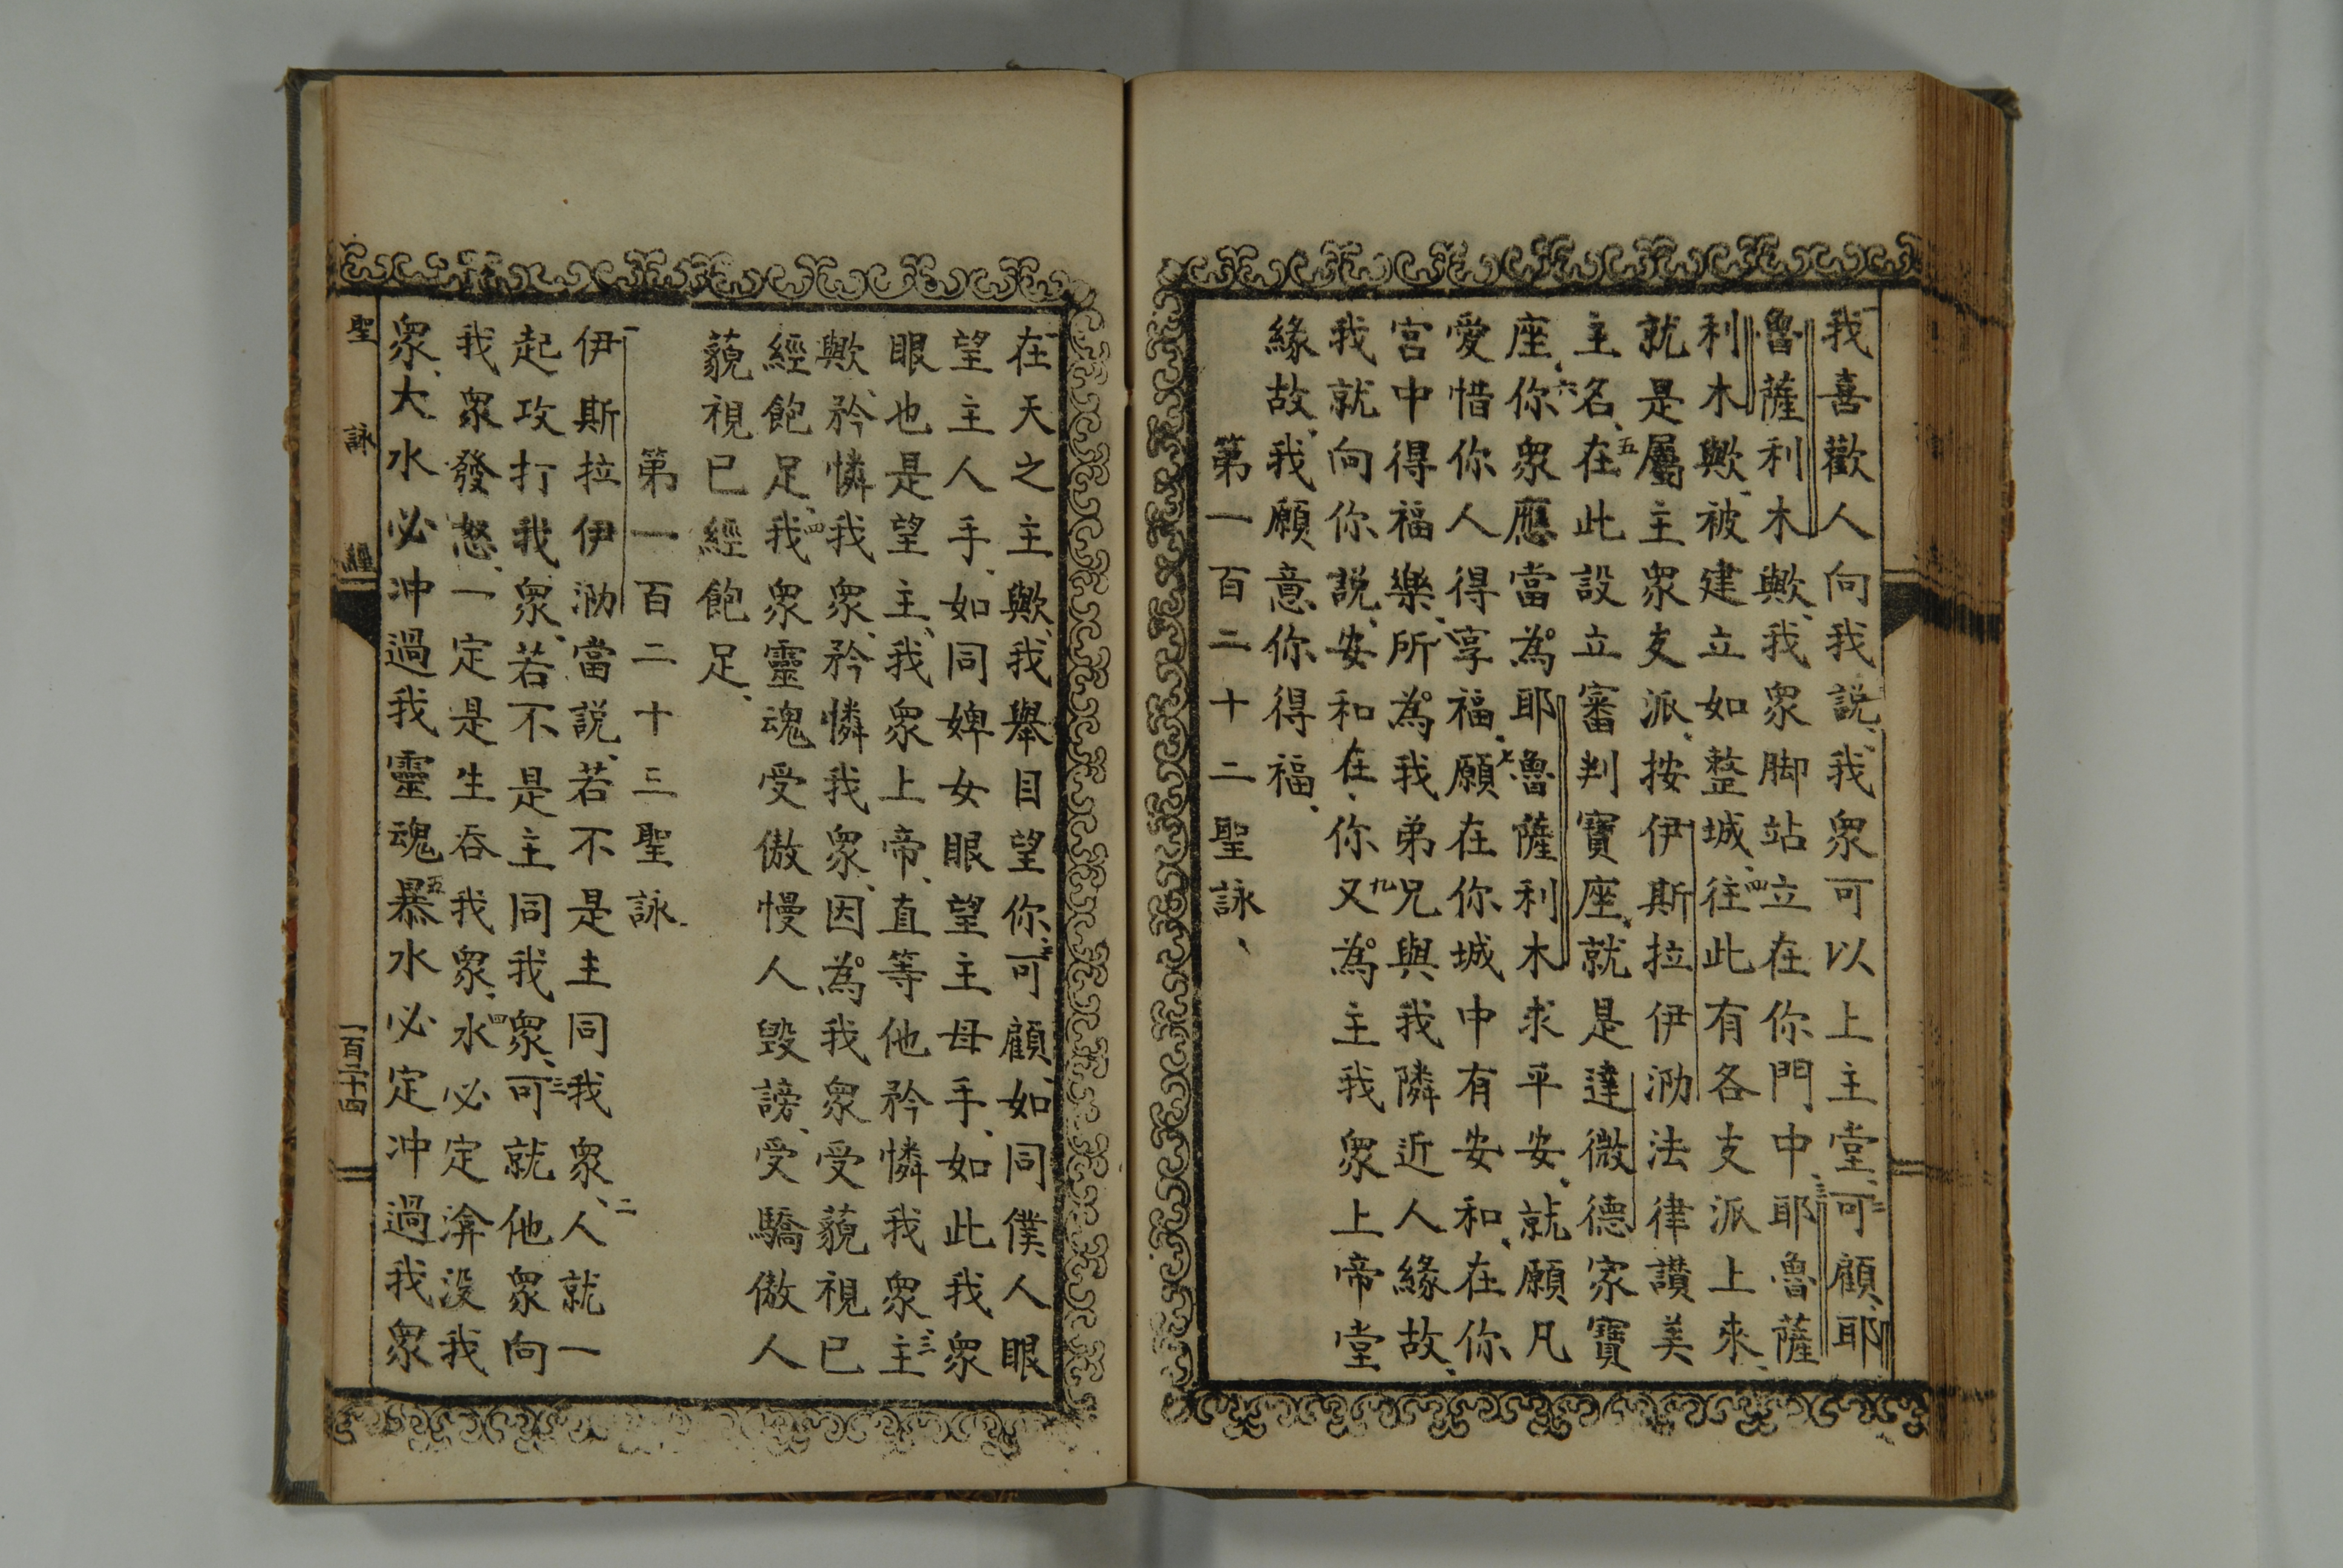 一我喜歡人向我說、我衆可以上主堂、二可顧、耶
魯薩利木歟、我衆脚站立在你門中、三耶魯薩
利木歟、被建立如整城、四往此有各支派上來、
就是屬主衆支派、按伊斯拉伊泐法律讃美
主名、五在此設立審判寶座、就是達微德家寶
座、六你衆應當為耶魯薩利木求平安、就願凡
愛惜你人得享福、七願在你城中有安和、在你
宮中得福樂、所為我弟兄與我隣近人緣故、
我就向你說、安和在你九又為主我衆上帝堂
緣故、我願意你得福、
第一百二十二聖詠、
一在天之主歟、我舉目望你、二可顧、如同僕人眼
望主人手、如同婢女眼望主母手、如此我衆
眼也是望主、我衆上帝、直等他矜憐我衆、三主
歟、矜憐我衆、矜憐我衆、因為我衆受藐視已
經飽足、四我衆靈魂受傲慢人毀謗、受驕傲人
藐視已經飽足、
第一百二十三聖詠、
一伊斯拉伊泐當說、若不是主同我衆、二人就一
起攻打我衆、若不是主同我衆、三可就他衆向
我衆發怒、一定是生吞我衆、四水必定渰没我
衆、大水必冲過我靈魂五暴水必定冲過我衆
聖詠經
一百二十四